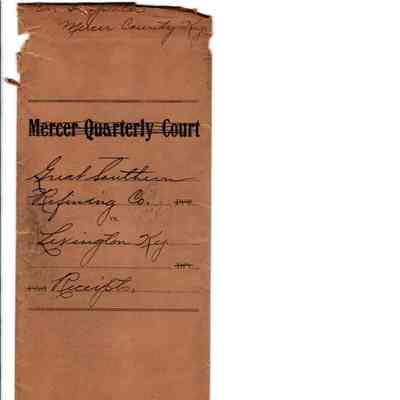 Mercer County Ky.
Mercer Quarterly Court
Great Southern
Refining Co.
vs.
Lexington Ky
Receipts.